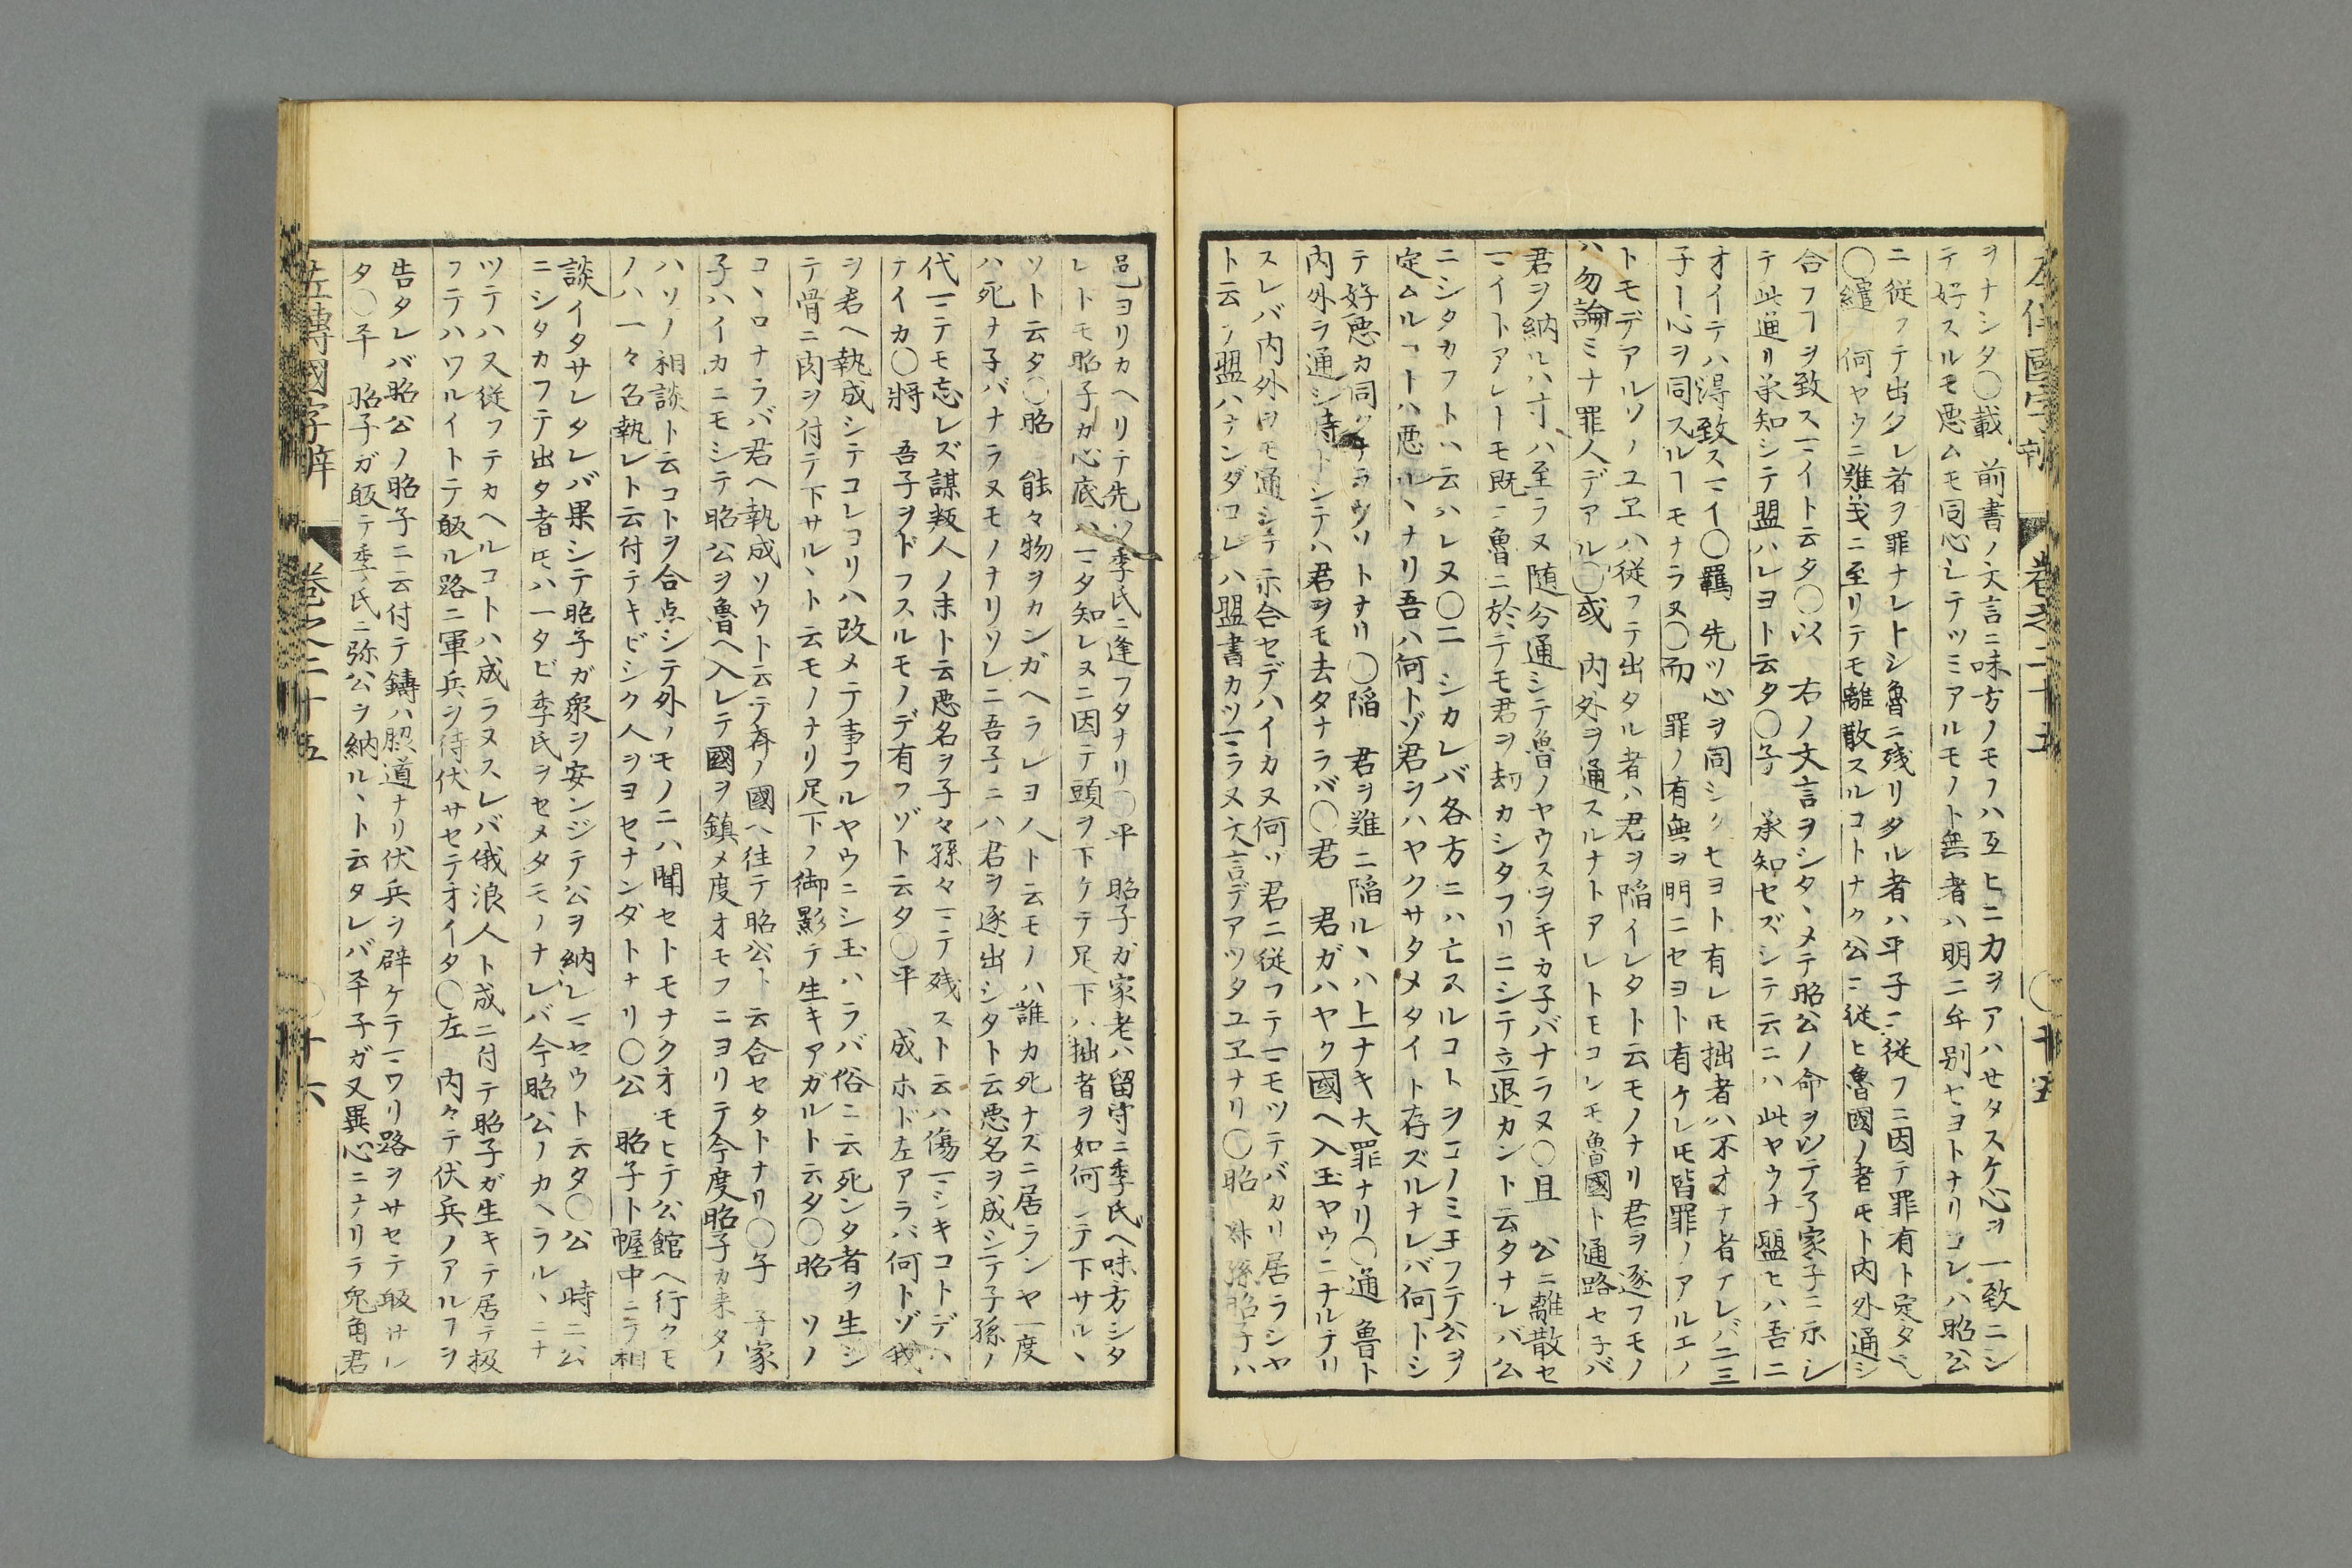 左傳國字辯 卷之二十五 〇十五
ヲナシタ〇載 前書ノ文言ニ味方ノモノハ互ヒニ力ヲアハせタスケ心ヲ一致ニシ
テ好スルモ悪ムモ同心シテツミアルモノト無者ハ明ニ弁別セヨトナリコレハ昭公
ニ従フテ出タレ者ヲ罪ナレトシ魯ニ残リタル者ハ平子ニ従フニ因テ罪有ト定タ
〇繾 何ヤウニ難義ニ至リテモ離散スルコトナク公ニ従ヒ魯國ノ者モト内外通シ
合フヿヲ致スマイト云タ〇以 右ノ文言ヲシタヽメテ昭公ノ命ヲ以テ子家子ニ示シ
テ此通リ承知シテ盟ハレヨト云タ〇子 承知セズシテ云ニハ此ヤウナ盟ヒハ吾ニ
オイテハ得致スマイ〇羈 先ツ心ヲ同シクセヨト有レ𪜈拙者ハ不才ナ者ナレバ二三
子ト心ヲ同スルヿモナラヌ〇而 罪ノ有無ヲ明ニセヨト有ケレ𪜈皆罪ノアルエノ
トモデアルソノユヱハ従フテ出タル者ハ君ヲ陥イレタト云モノナリ君ヲ逐フモノ
ハ勿論ミナ罪人デアル〇或 内外ヲ通スルナトアレトモコレモ魯國ト通路セ子バ
君ヲ納ルハ寸ハ至ラヌ随分通シテ魯ノヤウスヲキカ子バナラヌ〇且 公ニ離散セ
マイトアレトモ既ニ魯ニ於テモ君ヲ刧カシタフリニシテ立退カント云タナレバ公
ニシタカフトハ云ハレヌ〇二 シカレバ各方ニハ亡スルコトヲコノミ玉フテ公ヲ
定ムルコトハ悪ルヽナリ吾ハ何トゾ君ヲハヤクサタメタイト存ズルナレバ何トシ
テ好悪カ同ツナラウソトナリ〇陥 君ヲ難ニ陥ルヽハ上ナキ大罪ナリ〇通 魯ト
内外ヲ通シ待トシテハ君ヲモ去タナラバ〇君 君ガハヤク國ヘ入玉ヤウニナルテリ
スレバ内外ヲモ通シテ示合セデハイカヌ何ソ君ニ従フテマモツテバカリ居ラシヤ
ト云ソ盟ハナンダコレハ盟書カツマラヌ文言デアツタユヱナリ〇昭 叔孫昭子ハ
邑ヨリカヘリテ先ツ季氏ニ逢フタナリ〇平 昭子ガ家老ハ留守ニ季氏ヘ味方シタ
レトモ昭子カ心底ハマタ知レヌニ因テ頭ヲ下ケテ足下ハ拙者ヲ如何シテ下サルヽ
ソト云タ〇昭 能々物ヲカンガヘラレヨ人ト云モノハ誰カ死ナズニ居ランヤ一度
ハ死ナ子バナラヌモノナリソレニ吾子ニハ君ヲ逐出シタト云悪名ヲ成シテ子孫ノ
代マテモ忘レズ謀叛人ノ末ト云悪名ヲ子々孫々マテ残スト云ハ傷マシキコトデハ
ナイカ〇將 吾子ヲドフスルモノデ有フゾト云タ〇平 成ホド左アラバ何トゾ我
ヲ君ヘ執成シテコレヨリハ改メテ事フルヤウニシ玉ハラバ俗ニ云死ンタ者ヲ生シ
テ骨ニ肉ヲ付テ下サルヽト云モノナリ足下ノ御影テ生キアガルト云タ〇昭 ソノ
コヽロナラバ君ヘ執成ソウト云テ斉ノ國ヘ往テ昭公ト云合セタトナリ〇子 子家
子ハイカニモシテ昭公ヲ魯ヘ入レテ國ヲ鎮メ度オモフニヨリテ今度昭子カ来タノ
ハソノ相談ト云コトヲ合点シテ外ノモノニハ聞セトモナクオモヒテ公館ヘ行クモ
ノハ一々召執レト云付テキビシク人ヲヨセナンダトナリ〇公 昭子ト幄中ニテ相
談イタサレタレバ果シテ昭子ガ衆ヲ安ンジテ公ヲ納レマセウト云タ〇公 時ニ公
ニシタカフテ出タ者𪜈ハ一タビ季氏ヲセメタモノナレバ今昭公ノカヘラルヽニナ
ツテハ又従フテカヘルコトハ成ラヌスレバ俄浪人ト成ニ付テ昭子ガ生キテ居テ扱
フテハワルイトテ皈ル路ニ軍兵ヲ待伏サセテオイタ〇左 内々テ伏兵ノアルヿヲ
告タレバ昭公ノ昭子ニ云付テ鑄ハ脵道ナリ伏兵ヲ辟ケテマワリ路ヲサセテ皈サレ
タ〇平 昭子ガ皈テ季氏ニ弥公ヲ納ルヽト云タレバ平子ガ又異心ニナリテ兎角君
左傳國字辯 卷之二十五 〇十六